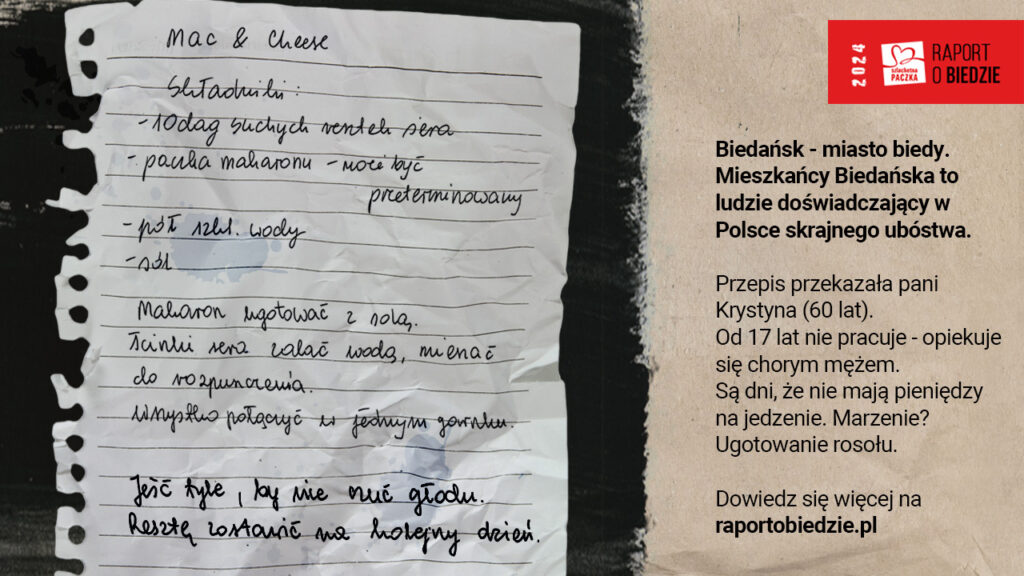 Mac & Cheese
Składniki:
- 10dag suchych resztek sera
- paczka makaronu - może być
przeterminowany
- pół szkl. wody
- sól
Makaron ugotować z solą.
Ścinki sera zalać wodą, mieszać
do rozpuszczenia.
Wszystko połączyć w jednym garnku.
Jeść tyle, by nie czuć głodu.
Resztę zostawić na kolejny dzień.
2024
szlachetna
PACZKA
RAPORT
O BIEDZIE
Biedańsk - miasto biedy.
Mieszkańcy Biedańska to
ludzie doświadczający w
Polsce skrajnego ubóstwa.
Przepis przekazała pani
Krystyna (60 lat).
Od 17 lat nie pracuje - opiekuje
się chorym mężem.
Są dni, że nie mają pieniędzy
na jedzenie. Marzenie?
Ugotowanie rosołu.
Dowiedz się więcej na
raportobiedzie.pl